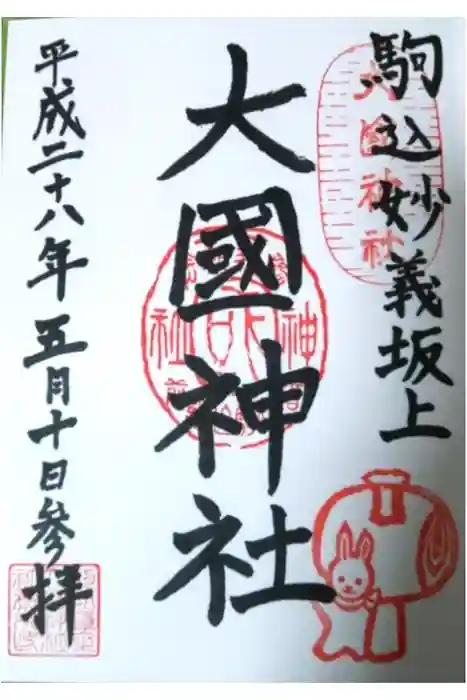 駒込妙義坂上
大國神社
平成二十八年五月十日参拝
大国神社